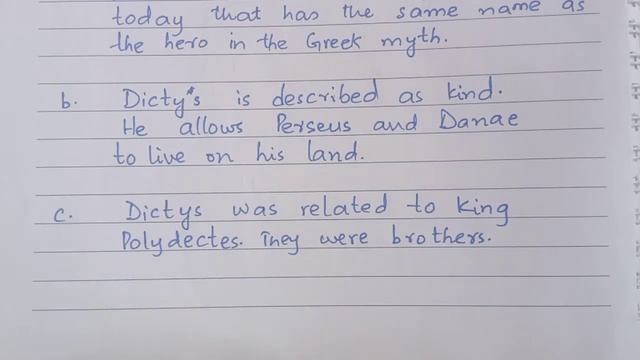 today that has the same name as
the hero in the Greek myth.
b. Dicty's is described as kind.
He allows Perseus and Danae
to live on his land.
c. Dictys was related to King
Polydectes. They were brothers.